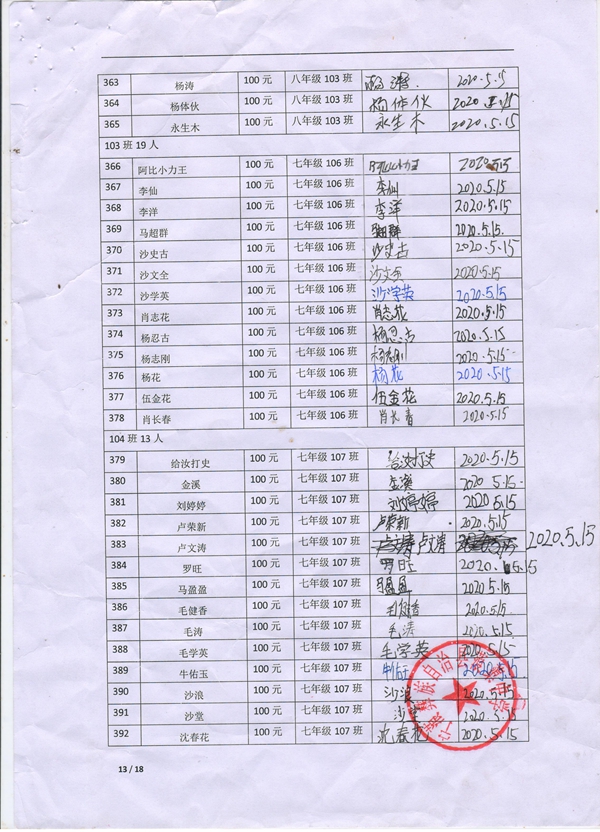 363 杨涛 100 元 八年级 103 班 杨涛 2020.5.15
364 杨体伙 100 元 八年级 103 班 杨体伙 2020.5.15
365 永生木 100 元 八年级 103 班 永生木 2020.5.15
103 班 19 人
366 阿比小力王 100 元 七年级 106 班 阿比小力王 2020.5.15
367 李仙 100 元 七年级 106 班 李仙 2020.5.15
368 李洋 100 元 七年级 106 班 李洋 2020.5.15
369 马超群 100 元 七年级 106 班 2020.5.15.
370 沙史古 100 元 七年级 106 班 沙史古 2020.5.15
371 沙文全 100 元 七年级 106 班 沙文全 2020.5.15
372 沙学英 100 元 七年级 106 班 沙学英 2020.5.15
373 肖志花 100 元 七年级 106 班 肖志花 2020.5.15
374 杨忍古 100 元 七年级 106 班 杨忍古 2020.5.15
375 杨志刚 100 元 七年级 106 班 2020.5.15
376 杨花 100 元 七年级 106 班 杨花 2020.5.15
377 伍金花 100 元 七年级 106 班 伍金花 2020.5.15
378 肖长春 100 元 七年级 106 班 肖长春 2020.5.15
104 班 13 人
379 给汝打史 100 元 七年级 107 班 给汝打史 2020.5.15
380 金溪 100 元 七年级 107 班 金溪 2020 5.15
381 刘婷婷 100 元 七年级 107 班 刘婷婷 2020 5.15
382 卢荣新 100 元 七年级 107 班 卢荣新 2020.5.15
383 卢文涛 100 元 七年级 107 班 卢文涛 2020.5.15
384 罗旺 100 元 七年级 107 班 罗旺 2020.5.15
385 马盈盈 100 元 七年级 107 班 马盈盈 2020.5.15
386 毛健香 100 元 七年级 107 班 毛健香 2020.5.15
387 毛涛 100 元 七年级 107 班 毛涛 2020.5.15
388 毛学英 100 元 七年级 107 班 毛学英 2020.5.15
389 牛佑玉 100 元 七年级 107 班 牛佑玉 2020.5.15
390 沙浪 100 元 七年级 107 班 沙浪 2020.5.15
391 沙堂 100 元 七年级 107 班 沙堂 2020.5.15
392 沈春花 100 元 七年级 107 班 沈春花 2020.5.15
13 / 18